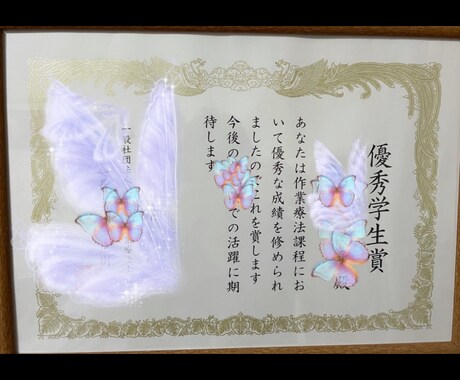 優秀学生賞
殿
あなたは作業療法課程にお
いて優秀な成績を修められ
ましたのでこれを賞します
今後の
での活躍に期
待します
一般社団